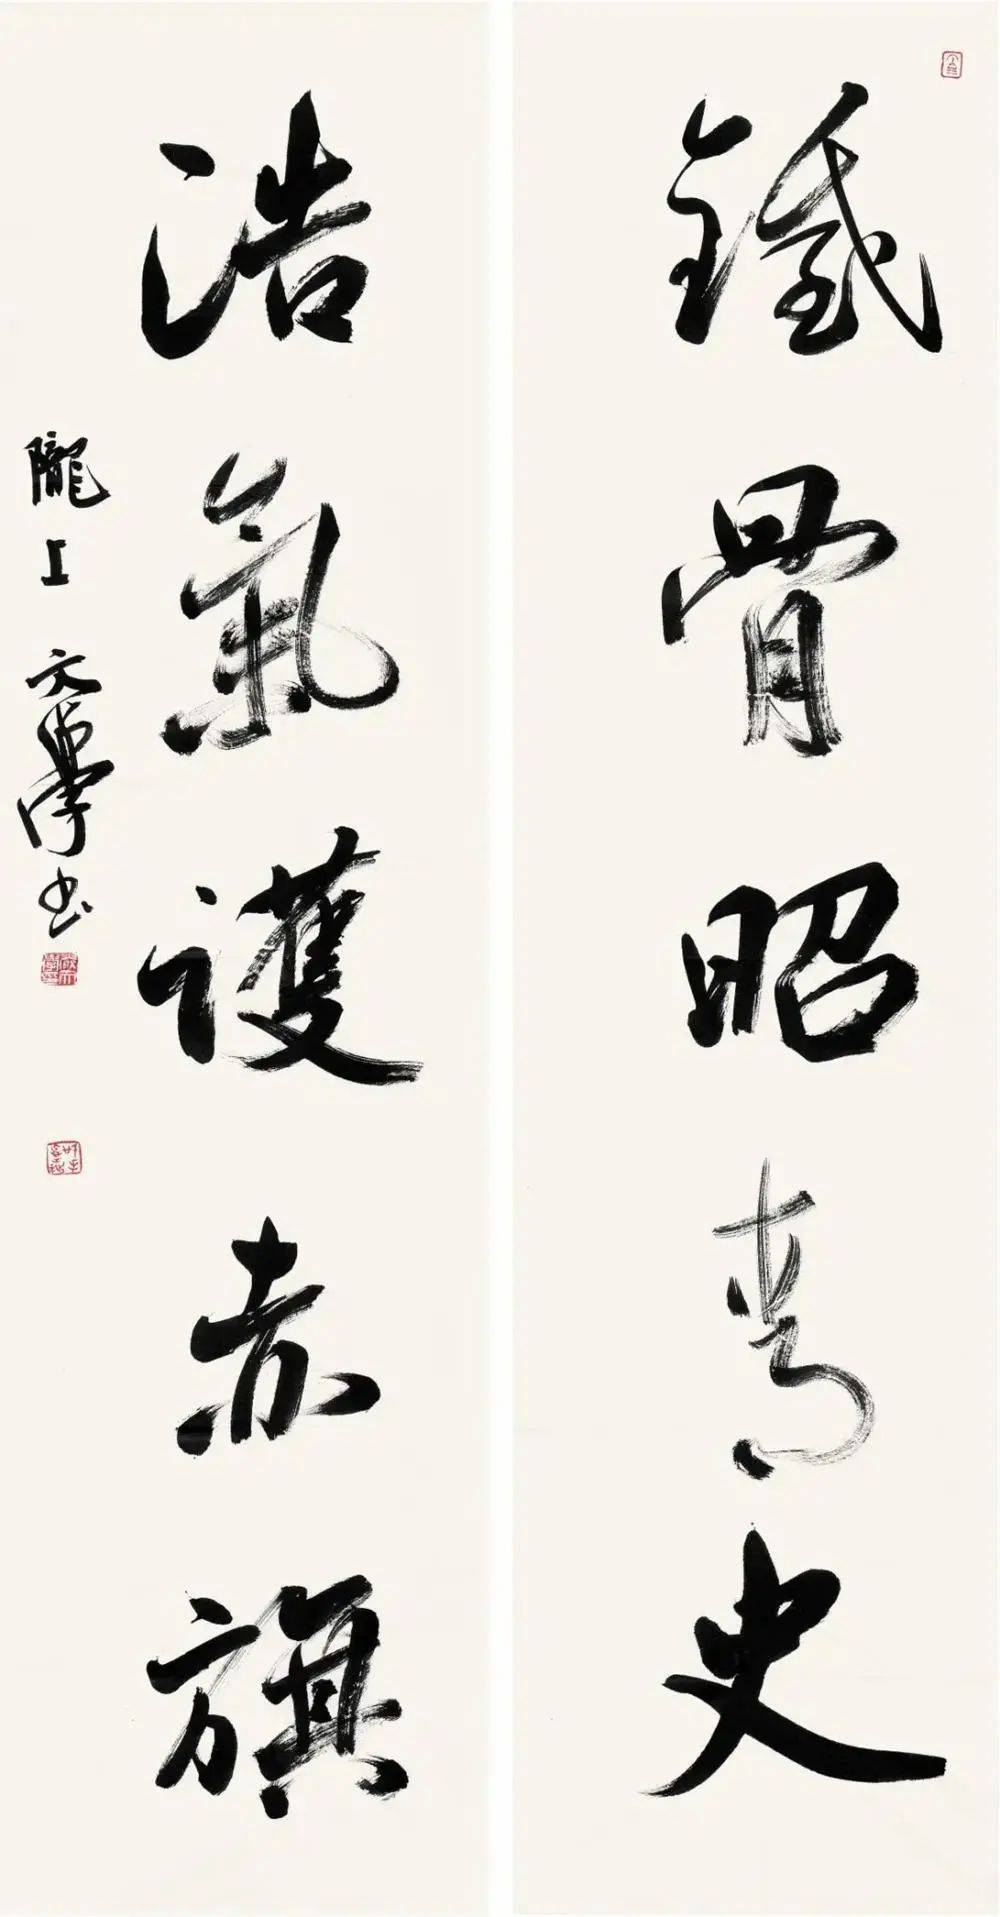 鐵骨昭青史
浩氣護赤旗
隴上文學書